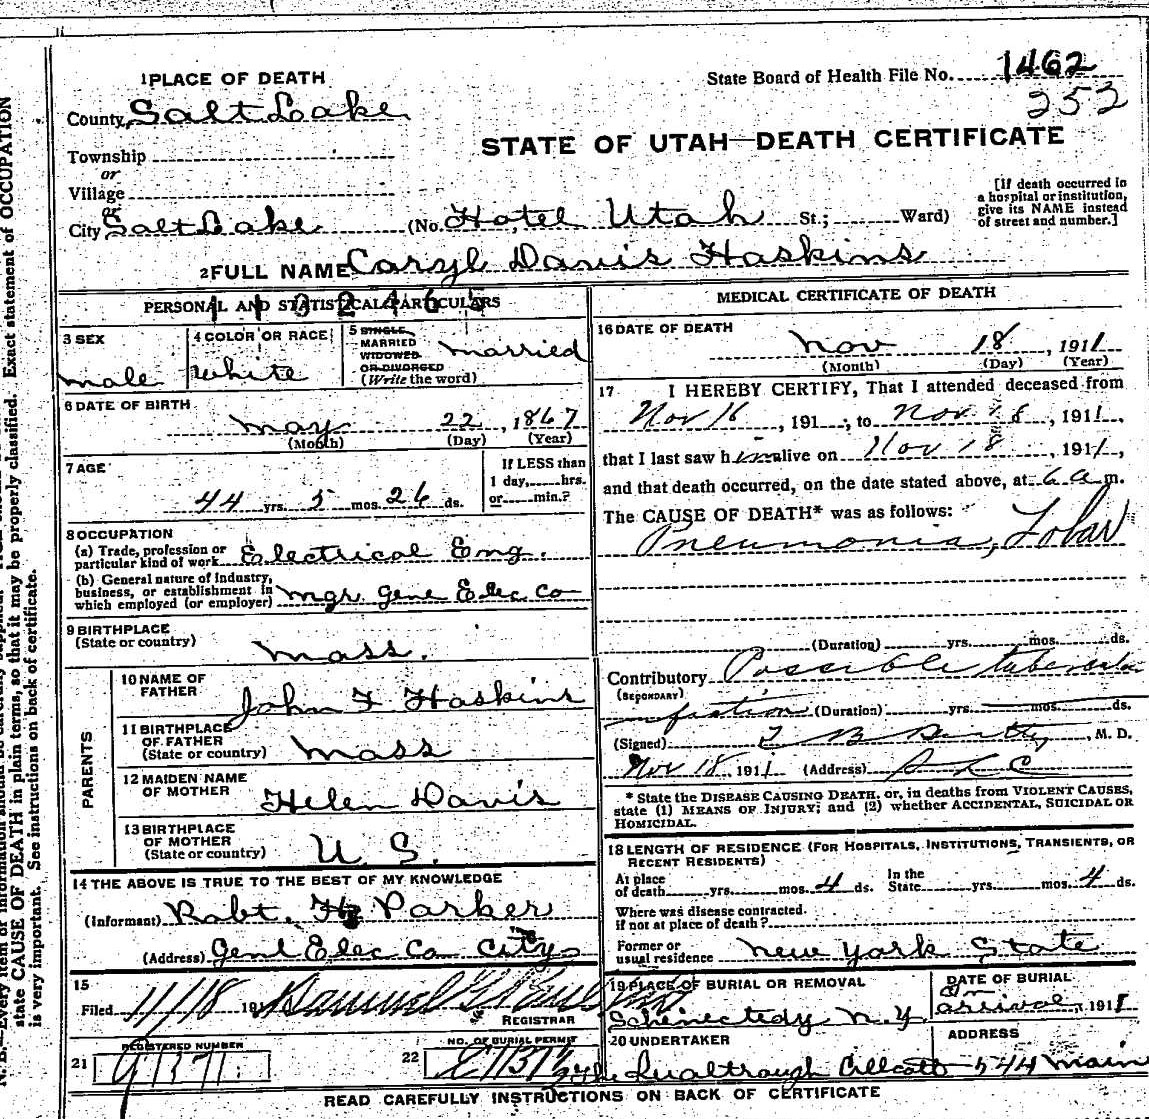 1 PLACE OF DEATH
State Board of Health File No. 1462
253
County Salt Lake
STATE OF UTAH—DEATH CERTIFICATE
Township
or
Village
or
City Salt Lake (No. Hotel Utah St.; Ward)
[If death occurred in a hospital or institution, give its NAME instead of street and number.]
2 FULL NAME Caryl Davis Haskins
PERSONAL AND STATISTICAL PARTICULARS
3 SEX
male
4 COLOR OR RACE
white
5 SINGLE
MARRIED
WIDOWED
OR DIVORCED
(Write the word)
married
6 DATE OF BIRTH
May 22, 1867
(Month) (Day) (Year)
7 AGE
44 yrs. 5 mos. 26 ds.
If LESS than
1 day, hrs.
or min.?
8 OCCUPATION
(a) Trade, profession or
particular kind of work Electrical Eng.
(b) General nature of industry,
business, or establishment in
which employed (or employer) Mgr. Gene Elec Co
9 BIRTHPLACE
(State or country)
Mass.
PARENTS
10 NAME OF
FATHER
John F Haskins
11 BIRTHPLACE
OF FATHER
(State or country)
Mass
12 MAIDEN NAME
OF MOTHER
Helen Davis
13 BIRTHPLACE
OF MOTHER
(State or country)
U. S.
14 THE ABOVE IS TRUE TO THE BEST OF MY KNOWLEDGE
(Informant) Robt. H Parker
(Address) Genl Elec Co City
15
Filed 11/18 191 Samuel G
REGISTRAR
21 REGISTERED NUMBER
22 NO. OF BURIAL PERMIT
MEDICAL CERTIFICATE OF DEATH
16 DATE OF DEATH
Nov 18, 1911
(Month) (Day) (Year)
17 I HEREBY CERTIFY, That I attended deceased from
Nov 16, 191 , to Nov. 18, 1911,
that I last saw him alive on Nov 18, 1911,
and that death occurred, on the date stated above, at 6 a m.
The CAUSE OF DEATH* was as follows:
Pneumonia, Lobar
(Duration) yrs. mos. ds.
Contributory Possible tubercular
(SECONDARY)
infection (Duration) yrs. mos. ds.
(Signed) , M. D.
Nov 18 1911 (Address) S L C
* State the DISEASE CAUSING DEATH, or, in deaths from VIOLENT CAUSES,
state (1) MEANS OF INJURY; and (2) whether ACCIDENTAL, SUICIDAL OR
HOMICIDAL.
18 LENGTH OF RESIDENCE (FOR HOSPITALS, INSTITUTIONS, TRANSIENTS, OR
RECENT RESIDENTS)
At place
of death yrs. mos. 4 ds.
In the
State yrs. mos. 4 ds.
Where was disease contracted
if not at place of death?
Former or
usual residence New York State
19 PLACE OF BURIAL OR REMOVAL
Schenectedy N.Y.
DATE OF BURIAL
on
arrival, 1911
20 UNDERTAKER
ADDRESS
544 Main
READ CAREFULLY INSTRUCTIONS ON BACK OF CERTIFICATE
state CAUSE OF DEATH in plain terms, so that it may be properly classified. Exact statement of OCCUPATION
is very important. See instructions on back of certificate.